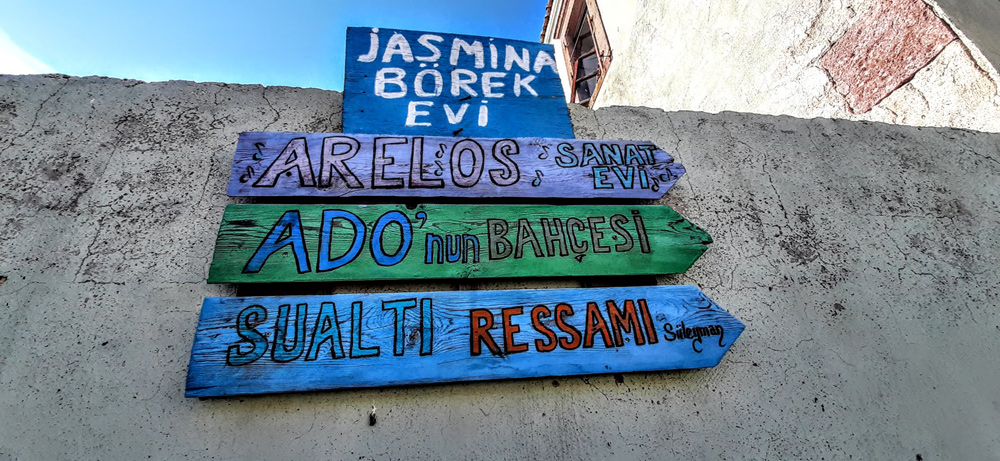 JAŞMİNA
BÖREK
EVİ
ARELOS SANAT
EVİ
ADO'nun BAHÇESİ
SUALTI RESSAMI Süleyman